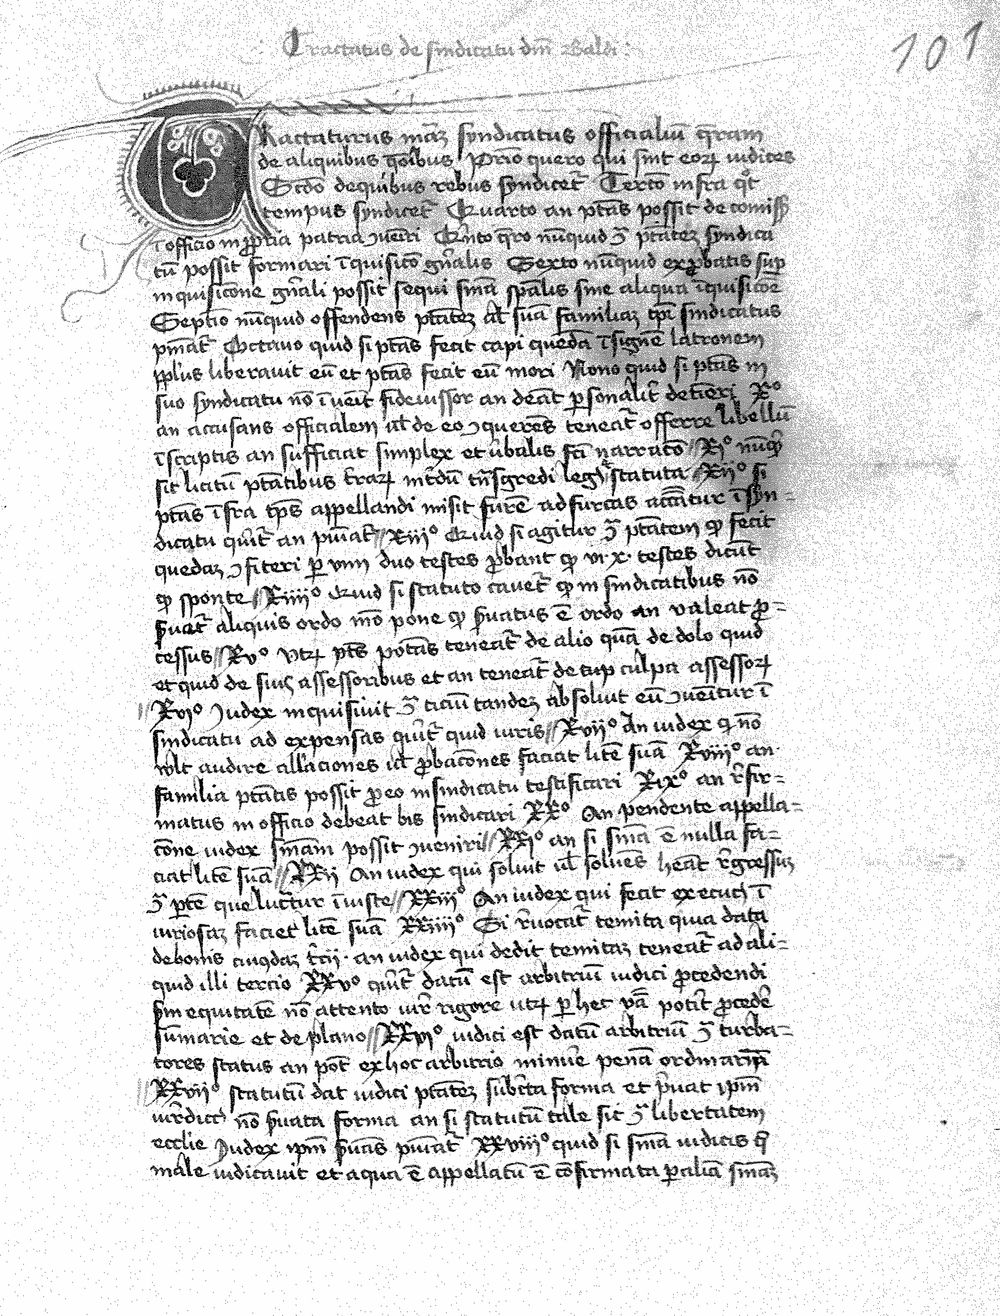 Tractatus de sindicatu dm̄ Baldi :
101
Tractaturus maz̄ syndicatus officialiū q̄ram
de aliquibus q̄oībus Prīo quero qui sint eorꝝ iudices
Scd̄o de quibus rebus syndicet̄ Tercio infra qt̄
tempus syndicet̄ Quarto an ptās possit de comiss̄
ī officio in ꝓpria patria ꝯueīri Qīnto q̄ro nūquid ꝯ̄ ptātez syndica
tū possit formari īquisico gn̄alis Sexto nūquid ex ꝓbatis sup̄
inquisicōne gn̄ali possit sequi sīnā sp̄alis sine aliqua īquisicōe
Septīo nūquid offendens ptātez ul̄ suā familiaz tp̄r sindicatus
pīuat̄ Octauo quid si ptās fecit capi quēdā īsignē latronem
pp̄lus liberauit eū et ptās fecit eū mori Nono quid si ptās in
suo syndicatu nō īuenit fideiussor an dēat ꝑsonalit̄ detīeri Xº
an accusans officialem ul̄ de eo ꝯquerēs teneat̄ offerre libellū
īscriptis an sufficiat simplex et ūbalis fc̄i narracō XIº nūqd̄
sit licitū ptātibus t̄rarꝝ int̄dū tn̄sgredi leges statuta XIIº si
ptās īfra tp̄s appellandi misit furē ad furcas accūtur ī syn=
dicatu quīt̄ an pūiat̄ XIIIº Quid si agitur ꝯ̄ ptātem qꝫ fecit
quedaz ꝯfiteri ꝑ vim duo testes ꝓbant qꝫ vi X testes dicūt
qꝫ sponte XIIIIº Quid si statuto cauet̄ qꝫ in sindicatibus nō
ꝓuat̄ aliquis ordo mō pone qꝫ ꝓuatus ē ordo an valeat ꝓ=
cessus XVº vtꝝ pt̄s potās teneat̄ de alio quā de dolo quid
et quid de suis assessoribus et an teneat̄ de tup culpa assessorꝝ
XVIº Judex inquisiuit ꝯ̄ ticiū tandez absoluit eū ꝯuēitur ī
sindicatu ad expensas quīt̄ quid iuris XVIIº An iudex q̄ nō
vlt audire all̄aciones ul̄ ꝓbacōnes faciat litē suā XVIIIº an
familia ptātis possit ꝓ eo in sindicatu testificari XIXº an r̄fir=
matus in officio debeat bis sindicari XXº An pendente appella=
cōne iudex sīnam possit ꝯueniri XXIº an si sīna ē nulla fa=
ciat litē suā XXII An iudex qui soluit ul̄ soluēs heāt r̄gressuz
ꝯ̄ ptē que luct̄ur īiuste XXIIIº An iudex qui fecit execuc̄ ī
iuriosaz faciet litē suā XXIIIIº Si r̄uocat̄ temita quia data
de bonis cuiqdaz t̄cii · an iudex qui dedit temitaz teneat̄ ad ali=
quid illi tercio XXVº quīt̄ datū est arbitriū iudici ꝓcedendi
ẜm equitatē nō attento iur̄ rigore vtꝝ ꝑ hec vā potīt ꝓcedē
sūmarie et de plano XXVIº iudici est datū arbitriū ꝯ̄ turba=
tores status an pōt ex hoc arbitrio minūe penā ordinariā
XXVIIº statutū dat iudici ptātez sub c̄ta forma et p̄uat ipm̄
iur̄dicc̄ nō ẜuata forma an si statutū tale sit ꝯ̄ libertatem
ecclīe Judex ipm̄ ẜuās pūiat̄ XXVIIIº quid si sīnā iudicis q̄
male iudicauit et a qua ē appellatū ē cōfirmata ꝑ aliā sīnaz